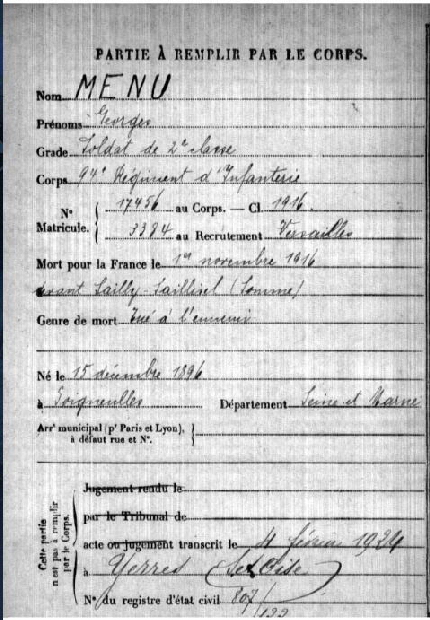 PARTIE À REMPLIR PAR LE CORPS.
Nom MENU
Prénoms Georges
Grade Soldat de 2e classe
Corps 94e Régiment d'Infanterie
N° Matricule. 17456 au Corps. — Cl. 1916
3384 au Recrutement Versailles
Mort pour la France le 1er novembre 1916
avant Sailly-Saillisel (Somme)
Genre de mort Tué à l'ennemi
Né le 15 décembre 1896
à Soignolles Département Seine et Marne
Arr^t municipal (p^r Paris et Lyon),
à défaut rue et N°.
Cette partie n'est pas à remplir par le Corps.
Jugement rendu le
par le Tribunal de
acte ou jugement transcrit le 4 février 1921
à Yerres (Set Oise)
N° du registre d'état civil 807/133